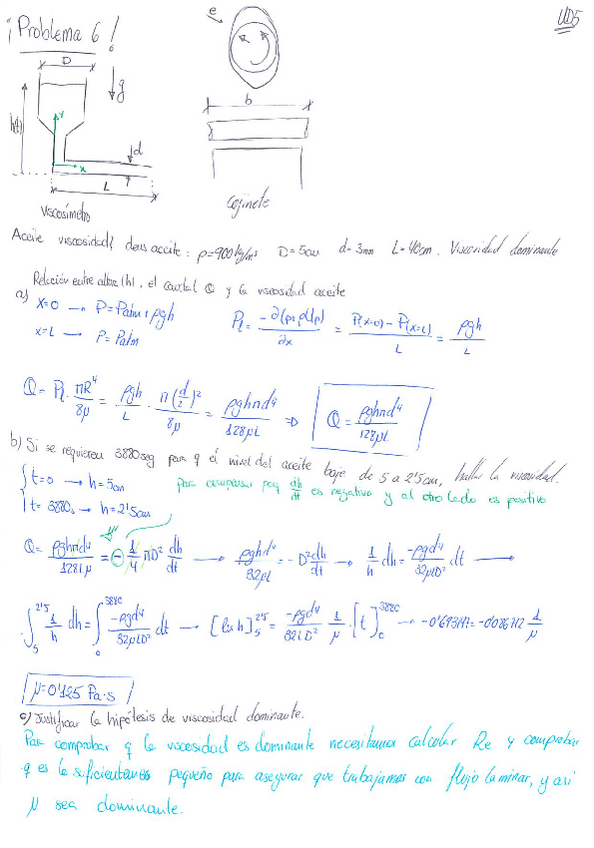 UD5
¡Problema 6!
e
D
g
h(t)
y
x
d
L
b
viscosímetro
Cojinete
Aceite viscosidad? densaceite: ρ=900kg/m³ D=5cm d=3mm L=40cm. Viscosidad dominante
Relación entre altura (h), el caudal Q y la viscosidad aceite
a) x=0 → P=Patm+ρgh
x=L → P=Patm
Pl = -∂(p+ρUp)/∂x = (P(x=0) - P(x=L))/L = ρgh/L
Q = Pl · πR⁴/8μ = ρgh/L · π(d/2)²/8μ = ρghπd⁴/128μL ⇒ Q = ρghπd⁴/128μL
b) Si se requieren 3880seg para q el nivel del aceite baje de 5 a 2'5cm, hallar la viscosidad.
t=0 → h=5cm
para compensar porq dh/dt es negativa y al otro lado es positivo
t=3880s → h=2'5cm
Q = ρghπd⁴/128Lμ = - 1/4 πD² dh/dt → ρghd⁴/32μL = -D² dh/dt → 1/h dh = -ρgd⁴/32μLD² dt →
∫₅^2'5 1/h dh = ∫₀^3880 -ρgd⁴/32μLD² dt → [ln h]₅^2'5 = -ρgd⁴/32LD² 1/μ · [t]₀^3880 → -0'693147 = -0'086712 1/μ
μ=0'125 Pa·s
c) Justificar la hipótesis de viscosidad dominante.
Para comprobar q la viscosidad es dominante necesitamos calcular Re y comprobar
q es lo suficientemente pequeño para asegurar que trabajamos con flujo laminar, y así
μ sea dominante.